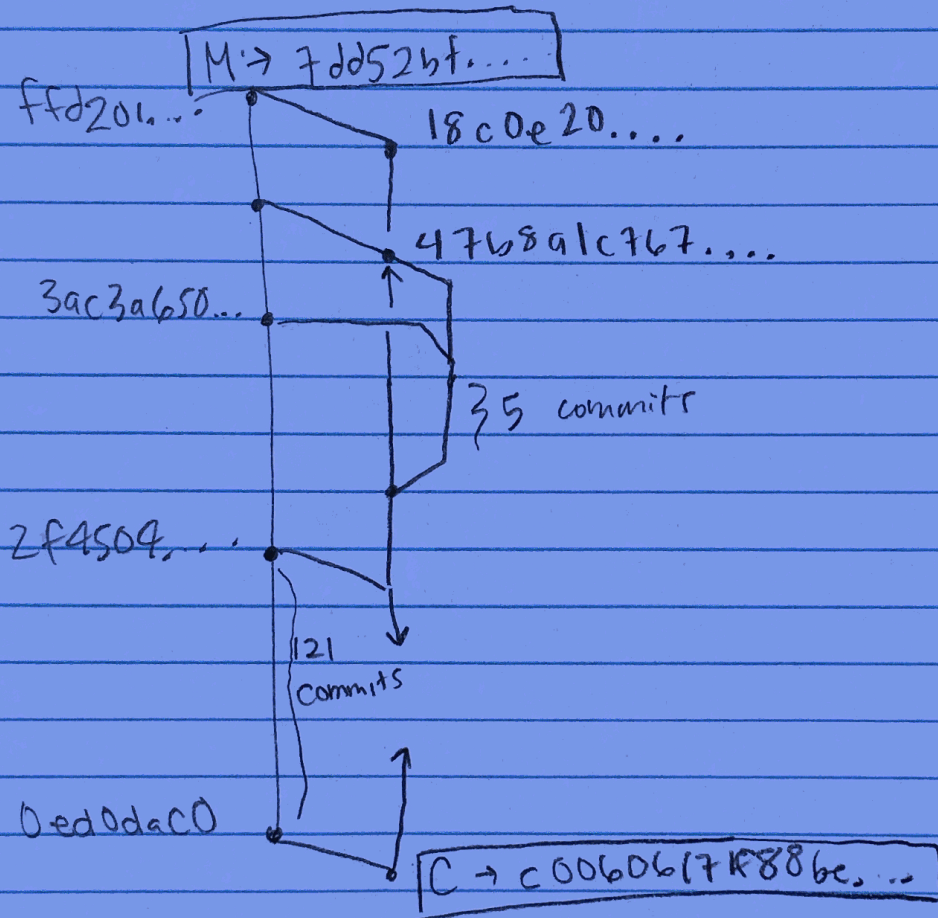 M → 7dd52bf....
ffd201....
18c0e20....
47b8a1c767....
3ac3a650...
35 commits
2f4504....
121
commits
0ed0dac0
C → c0060617